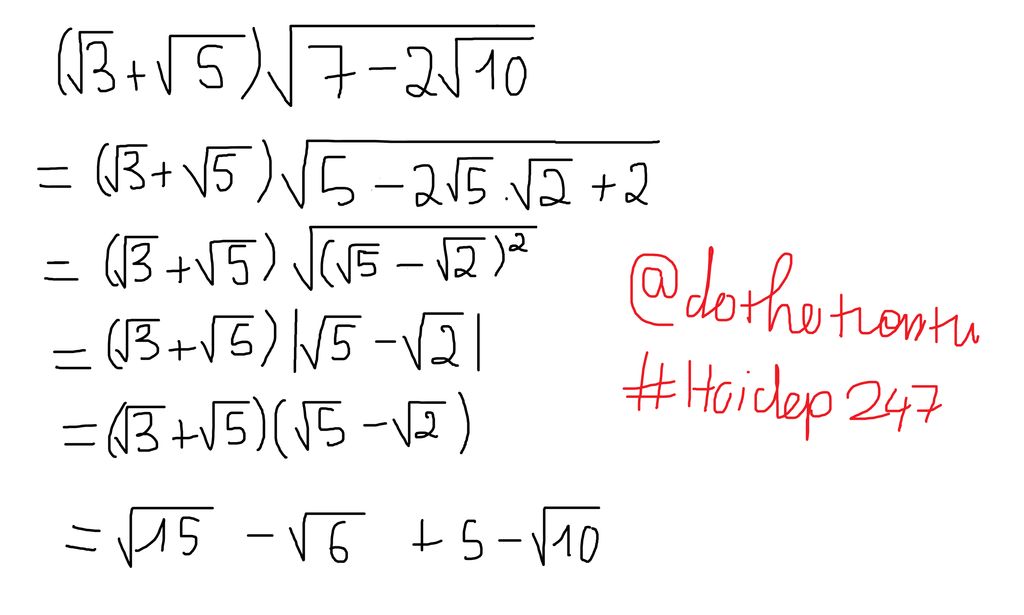 (√3+√5)√(7-2√10)
= (√3+√5)√(5-2√5.√2+2)
= (√3+√5)√((√5-√2)²)
= (√3+√5)|√5-√2|
= (√3+√5)(√5-√2)
= √15 - √6 + 5 - √10
@dothetrantu
#Hoidep247